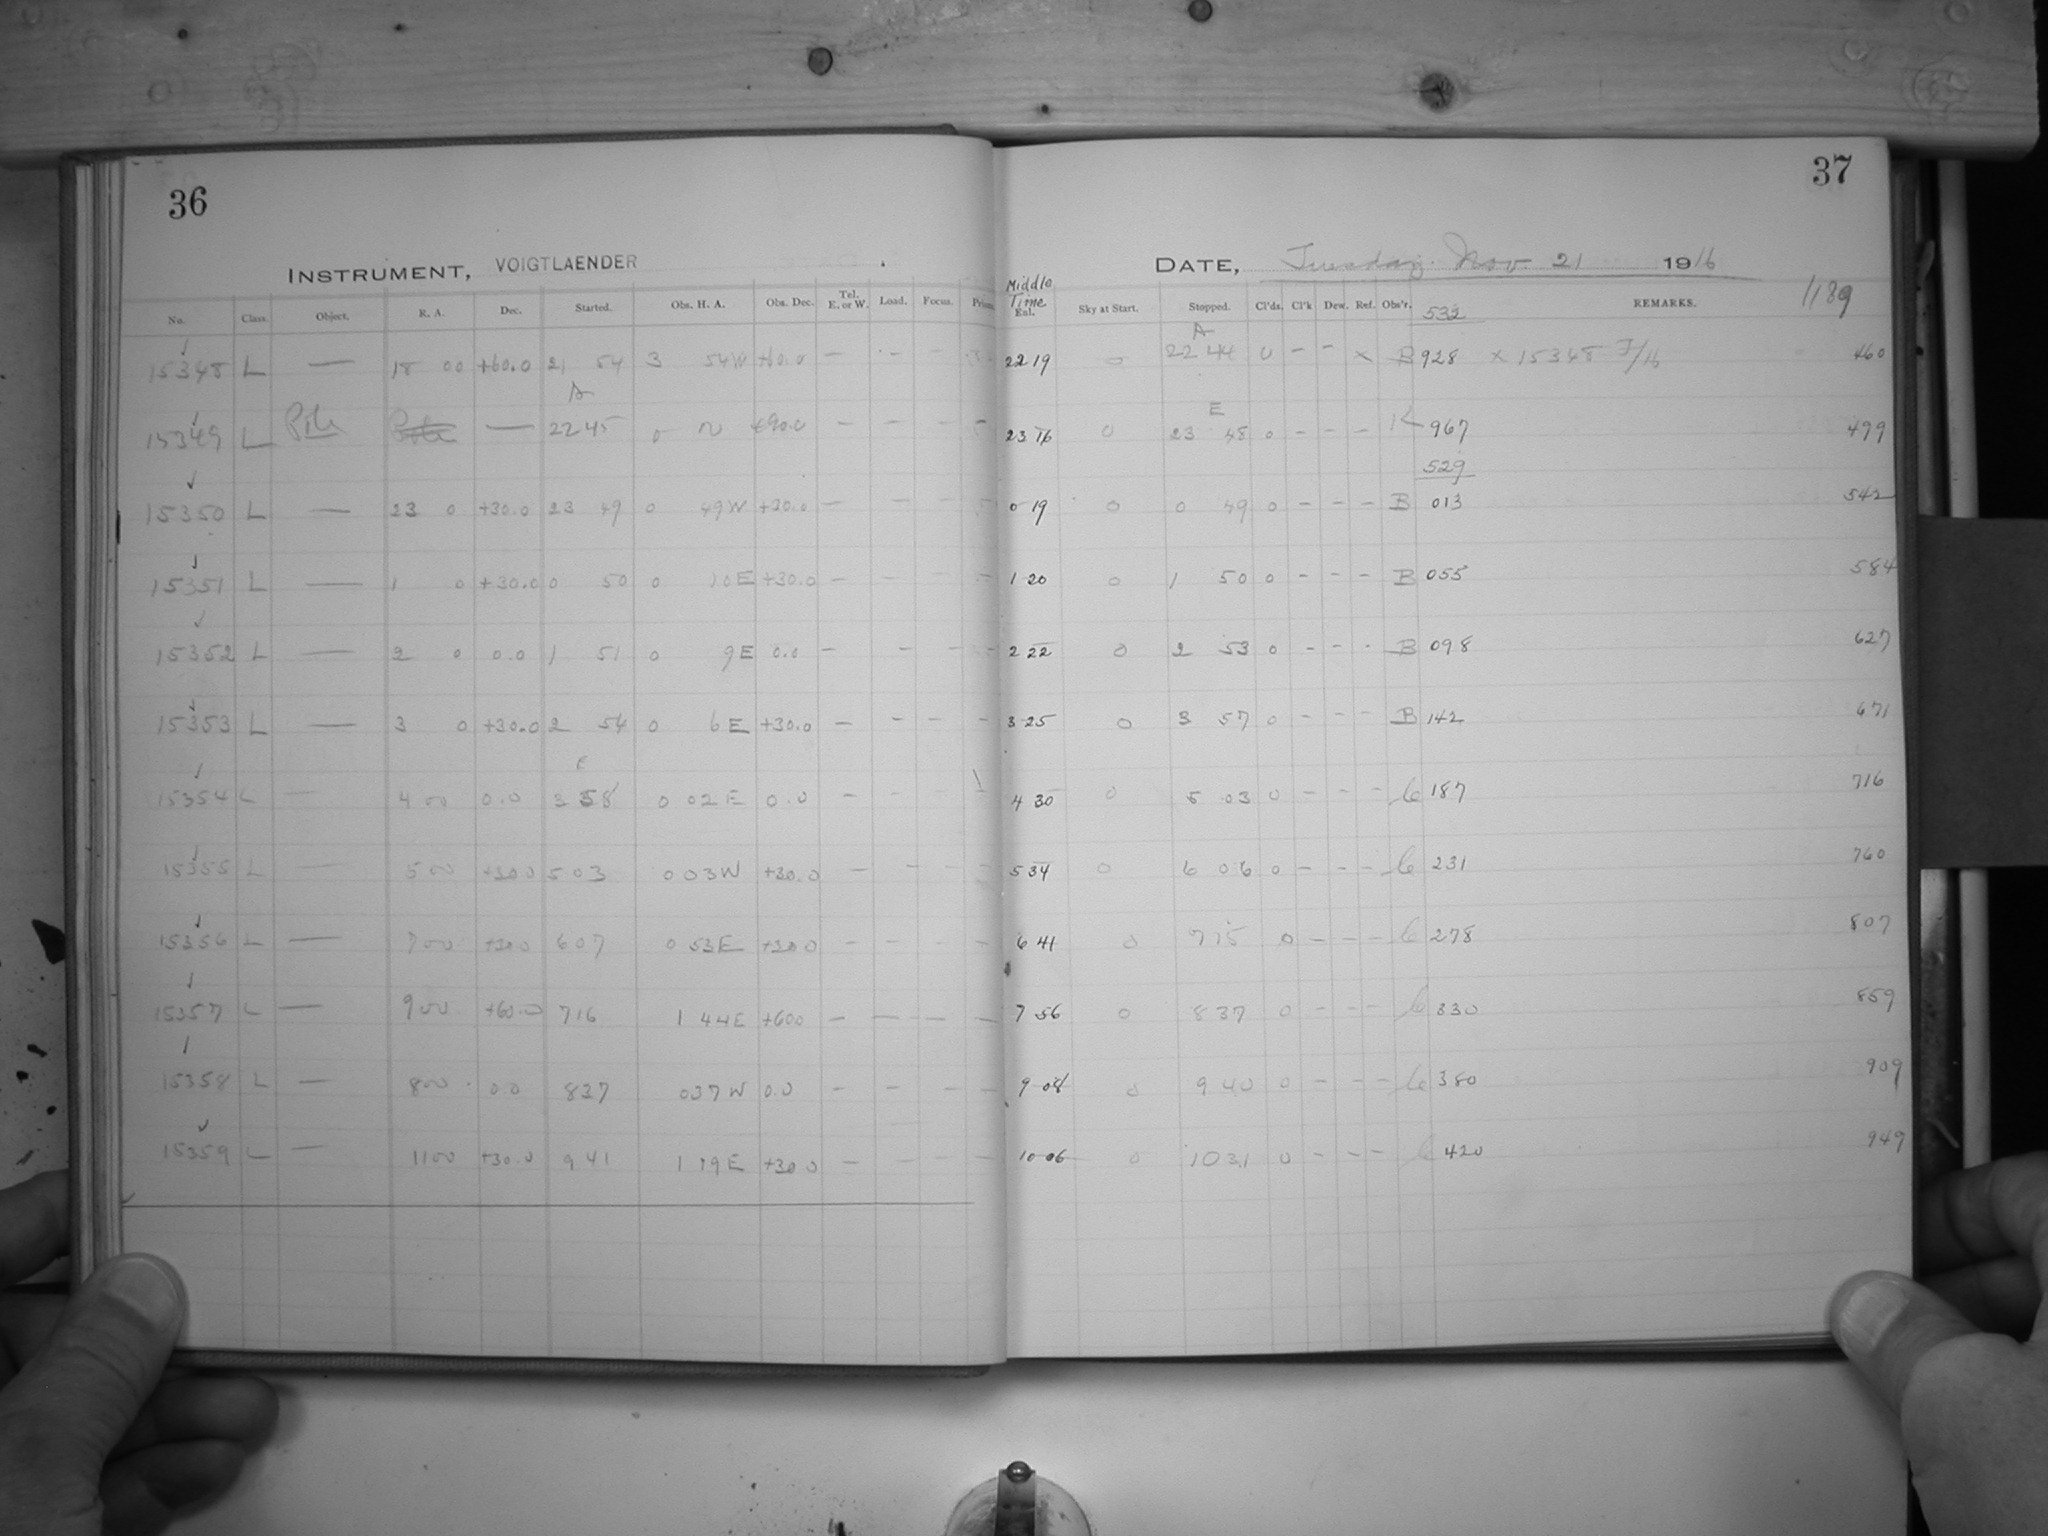 36
INSTRUMENT, VOIGTLAENDER
No. Class. Object. R. A. Dec. Started. Obs. H. A. Obs. Dec. Tel. E. or W. Load. Focus.
15348 L — 18 00 +60.0 21 54 3 54W +60.0 — - —
A
15349 L Pole Pole — 22 45 0 N +90.0 — — — —
15350 L — 23 0 +30.0 23 49 0 49W +30.0 — — —
15351 L — 1 0 +30.0 0 50 0 10E +30.0 — — — —
15352 L — 2 0 0.0 1 51 0 9E 0.0 — — — —
15353 L — 3 0 +30.0 2 54 0 6E +30.0 — — — —
E
15354 L — 4 00 0.0 3 58 0 02E 0.0 — — — —
15355 L — 5 00 +30.0 5 03 0 03W +30.0 — — — —
15356 L — 7 00 +30.0 6 07 0 53E +30.0 — — — —
15357 L — 9 00 +60.0 7 16 1 44E +60.0 — — — —
15358 L — 8 00 0.0 8 37 0 37W 0.0 — — — —
15359 L — 11 00 +30.0 9 41 1 19E +30.0 — — — —
37
DATE, Tuesday Nov. 21 1916
Middle Time Enl. Sky at Start. Stopped. Cl'ds. Cl'k Dew. Ref. Obs'r. REMARKS. 1189
532
A
22 19 0 22 44 0 - - x B 928 x 15348 F/16 460
E
23 16 0 23 48 0 - - - K 967 499
529
0 19 0 0 49 0 - - - B 013 542
1 20 0 1 50 0 - - - B 055 584
2 22 0 2 53 0 - - - B 098 627
3 25 0 3 57 0 - - - B 142 671
4 30 0 5 03 0 - - - 187 716
5 34 0 6 06 0 - - - 231 760
6 41 0 7 15 0 - - - 278 807
7 56 0 8 37 0 - - - 330 859
9 08 0 9 40 0 - - - 380 909
10 06 0 10 31 0 - - - 420 949